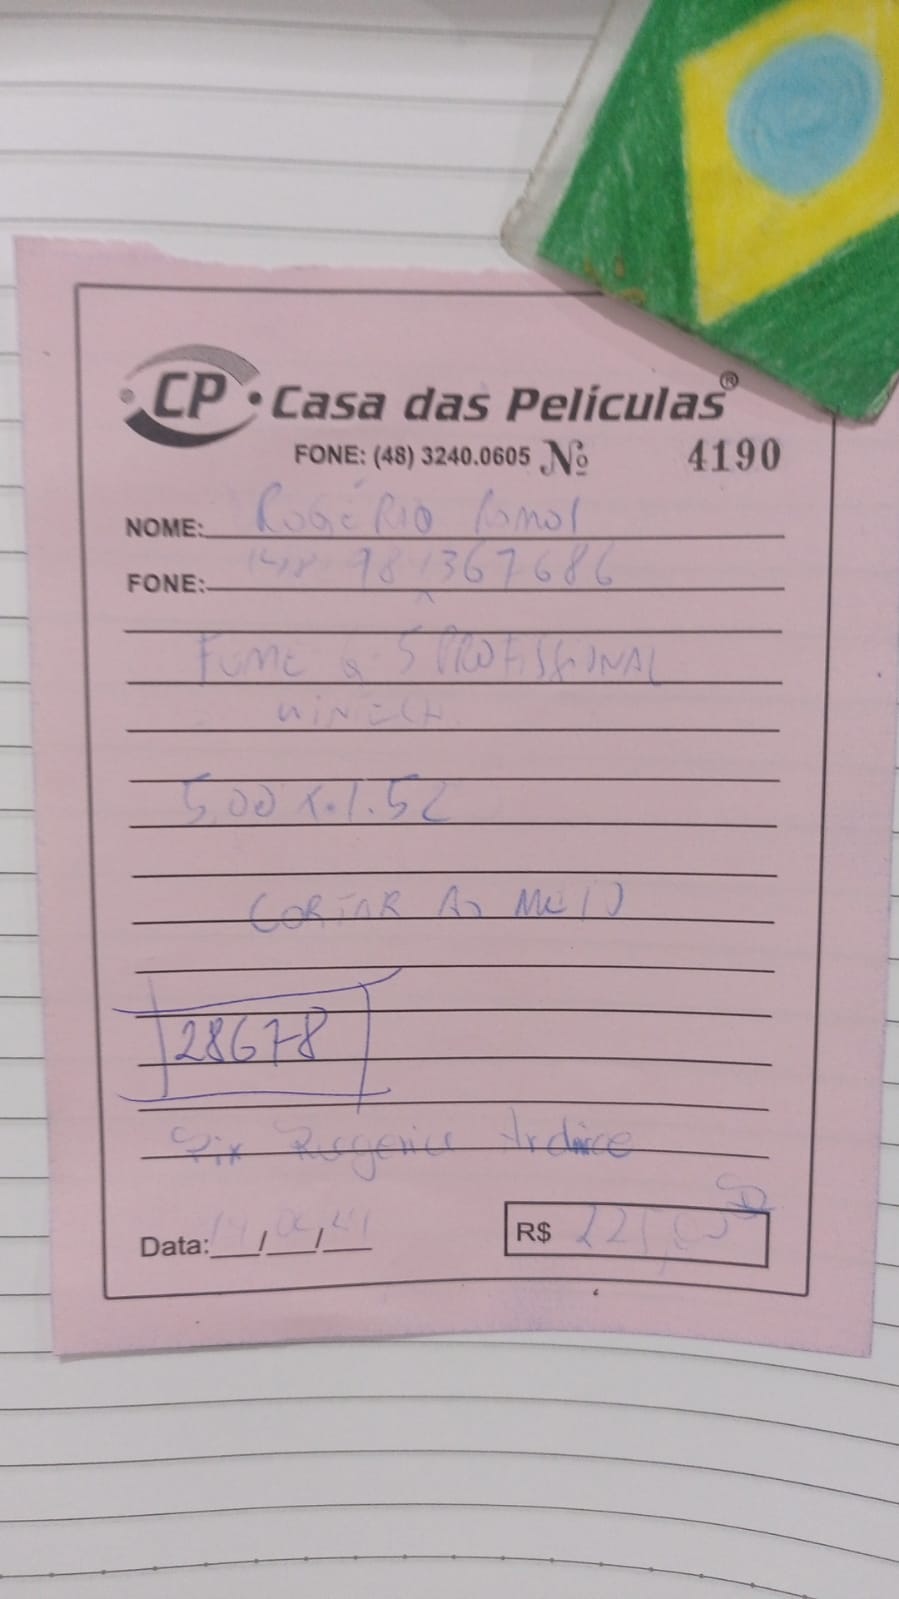 CP Casa das Películas®
FONE: (48) 3240.0605 Nº 4190
NOME: ROGÉRIO
FONE: 98 1367686
FUME G 5 PROFISSIONAL
5,00 X 1.52
CORTAR AO MEIO
28678
Pix
Data: __/__/__ R$ 225,00